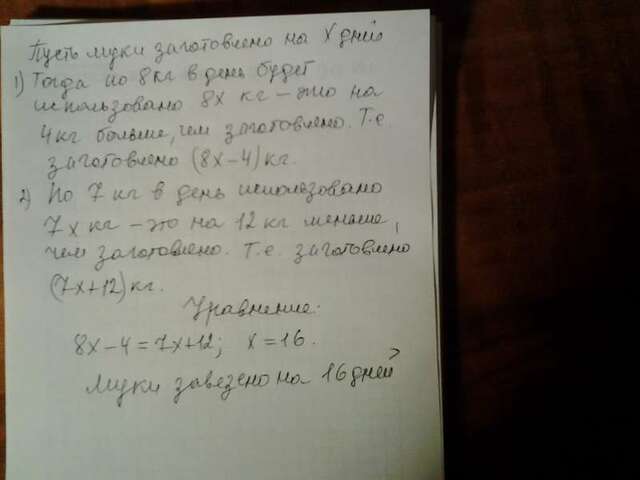 Пусть муки заготовлено на x дней
1) Тогда по 8 кг в день будет
использовано 8x кг – это на
4 кг больше, чем заготовлено. Т.е.
заготовлено (8x–4) кг.
2) По 7 кг в день использовано
7x кг – это на 12 кг меньше,
чем заготовлено. Т.е. заготовлено
(7x+12) кг.
Уравнение:
8x–4=7x+12; x=16.
Муки завезено на 16 дней